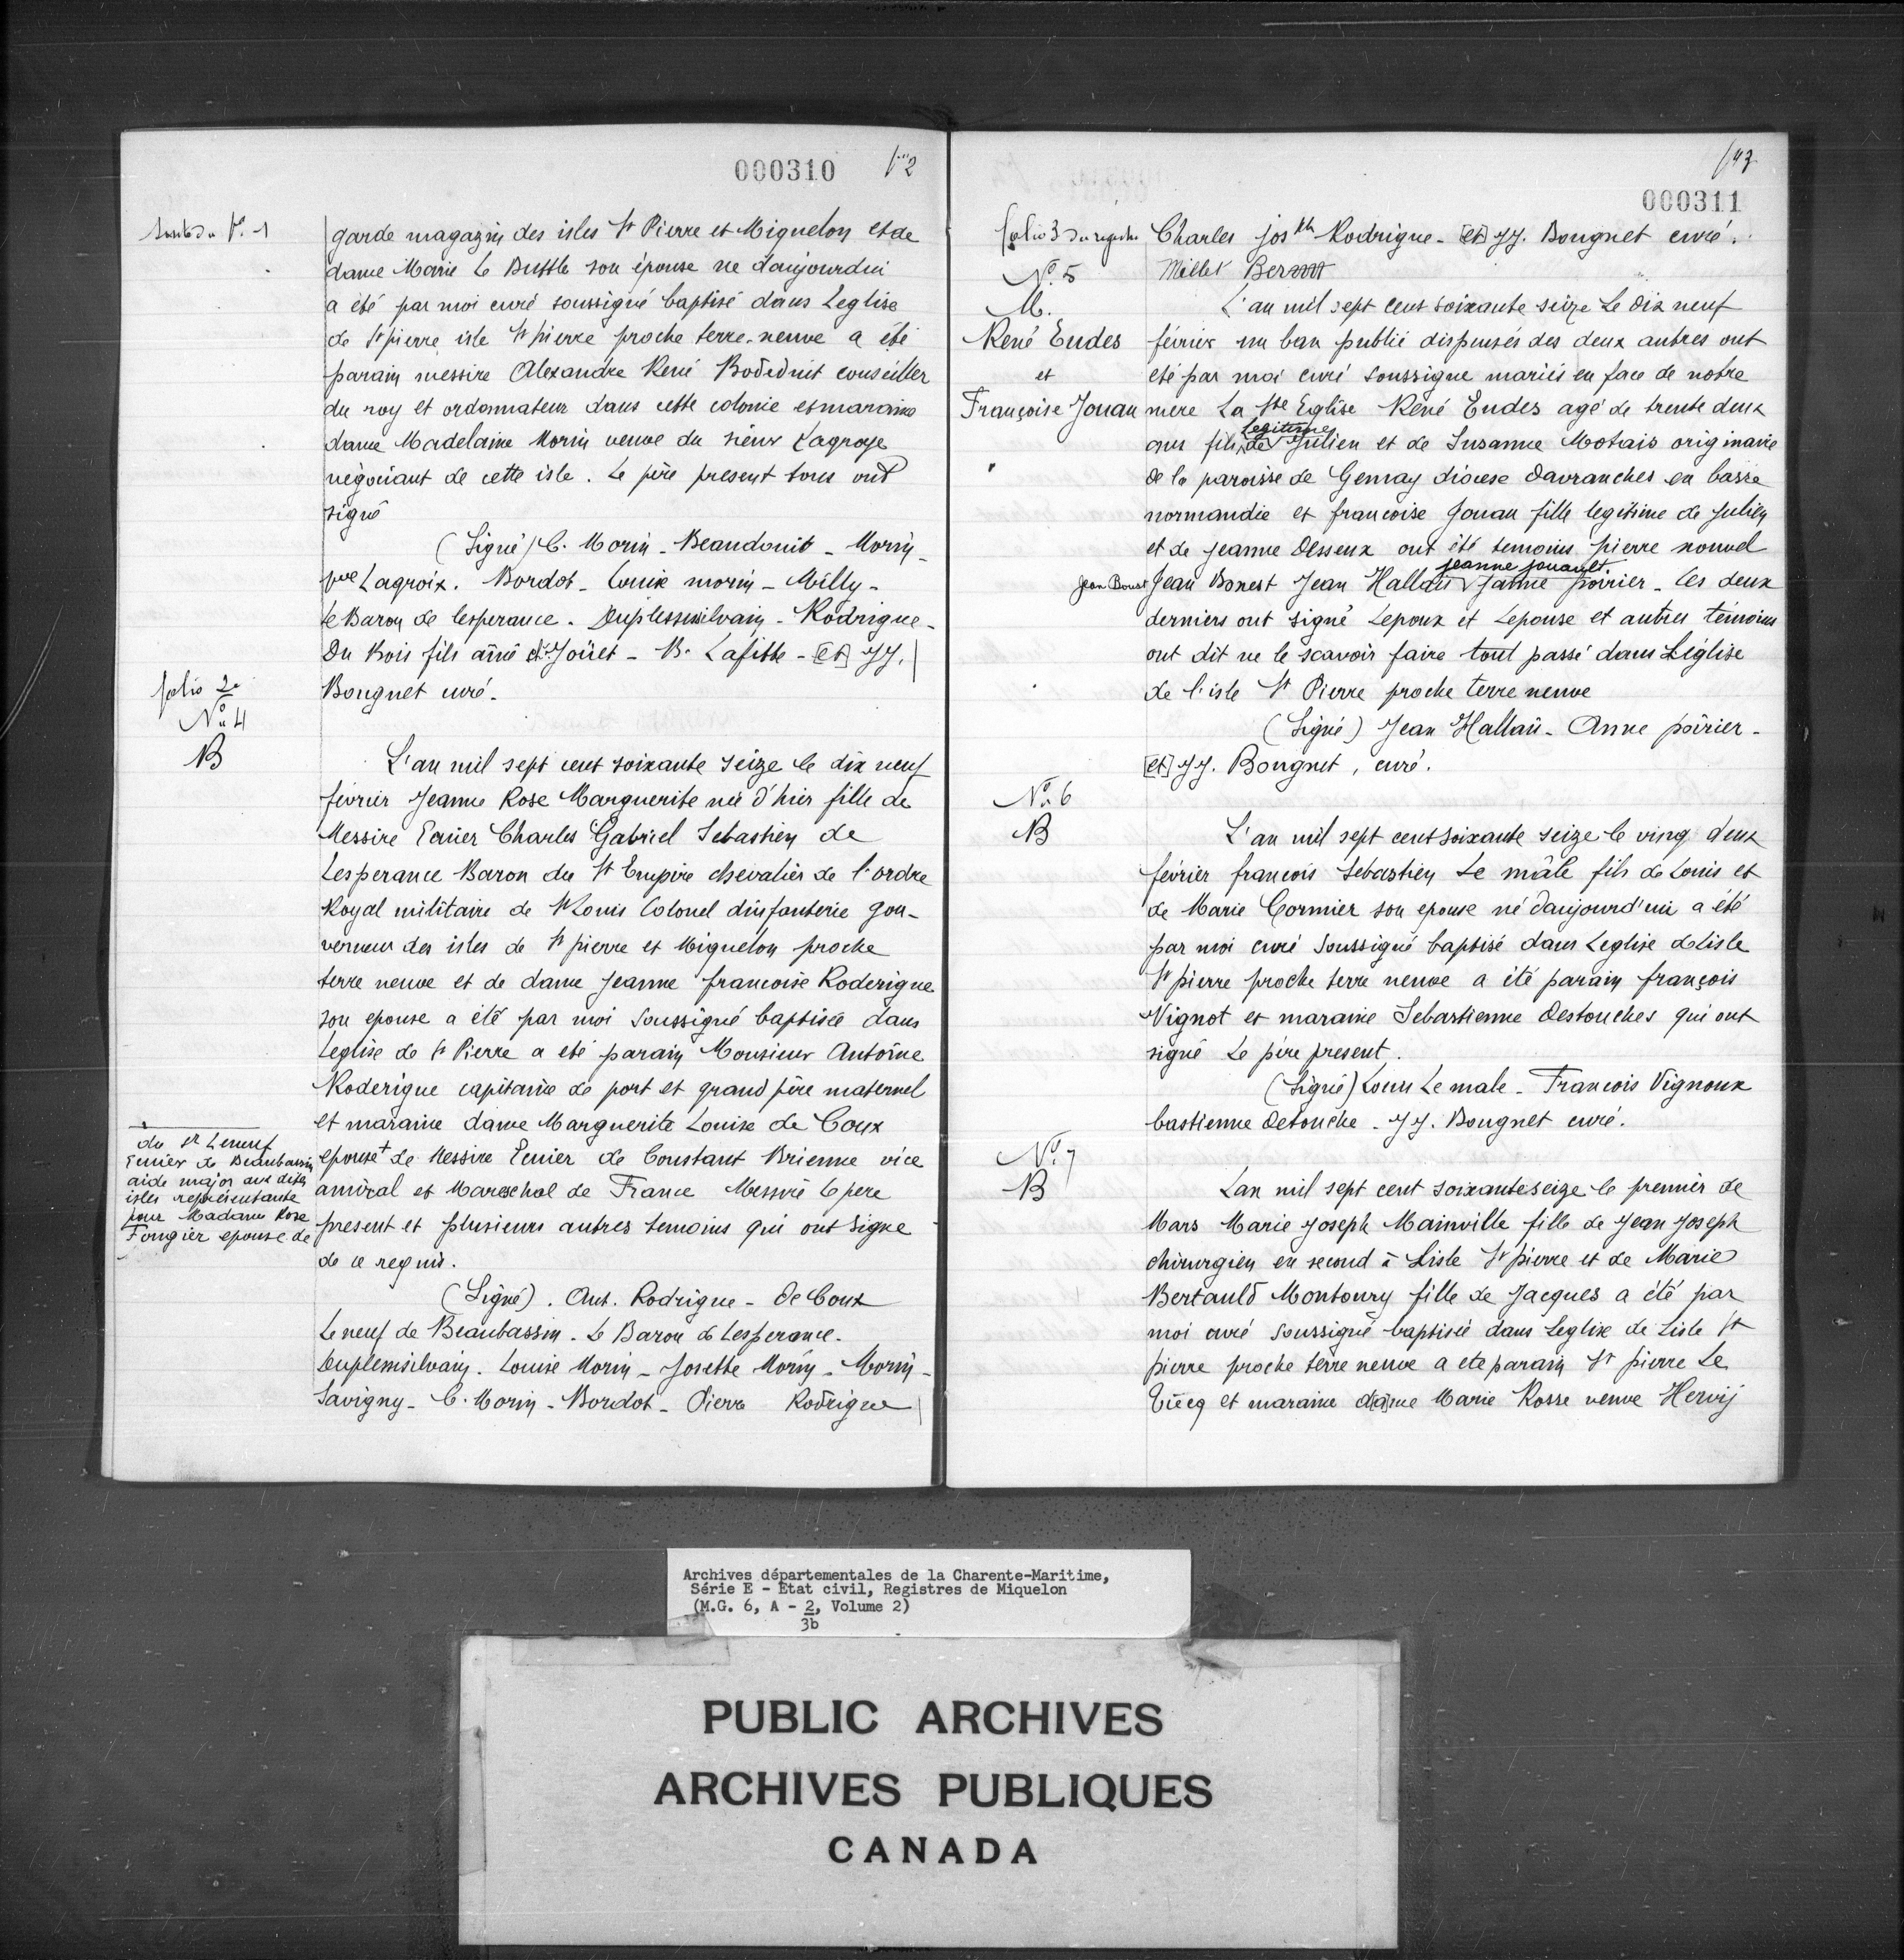 000310 fo 2
Suite du fo. 1
garde magazin des isles St Pierre et Miquelon et de
dame Marie Le Buffle son épouse ne daujourdui
a été par moi curé soussigné baptisé dans Leglise
de St pierre isle St pierre proche terre-neuve a été
parain messire Alexandre René Beaudouit conseiller
du roy et ordonnateur dans cette colonie et maraine
dame Madelaine Morin veuve du sieur Lagroye
négociant de cette isle. Le père present tous ont
signé
(Signé) C. Morin - Beaudouit - Morin -
pve Lagroix. Bordot - Louise morin - Milly -
Le Baron de lesperance. Duplessissilvain - Rodrigue -
Du Bois fils aîné Joüet - B. Lafitte - [et] JJ.
Bougnet curé.
folio 2e
No. 4
B
L'an mil sept cent soixante seize le dix neuf
février Jeanne Rose Marguerite née d'hier fille de
Messire Ecuier Charles Gabriel Sebastien de
Lesperance Baron du St Empire chevalier de l'ordre
Royal militaire de St Louis Colonel dinfanterie gou-
verneur des isles de St pierre et Miquelon proche
terre neuve et de dame Jeanne francoise Roderigue
son epouse a été par moi Soussigné baptisée dans
Leglise de St Pierre a eté parain Monsieur Antoine
Roderigue capitaine de port et grand père maternel
et maraine dame Marguerite Louise de Coux
epouse + de Messire Ecuier de Constant Brienne vice
amiral et Mareschal de France Messire le pere
present et plusieurs autres temoins qui ont Signe
de ce requis.
du sr Leneuf
Ecuier de Beaubassin
aide major aux dites
isles représentante
pour Madame Rose
Fougier epouse de
(Signé). Ant. Rodrigue - De Coux
Leneuf de Beaubassin. Le Baron de Lesperance.
Duplessisilvain. Louise Morin - Josette Morin - Morin -
Savigny - C. Morin - Bordot - Pierre Rodrigue
fo 3
000311
folio 3 du registre
Charles josph Rodrigue - [et] JJ. Bougnet curé.
Millet
No. 5
M.
René Eudes
et
Françoise Jouan
L'an mil sept cent soixante seize Le dix neuf
février un ban publié dispensés des deux autres ont
eté par moi curé soussigne mariés en face de notre
mere La Ste Eglise René Eudes agé de trente deux
ans fils legitime de Julien et de Susanne Motais originaire
de la paroisse de Gemay diocese davranches en basse
normandie et francoise Jouan fille legitime de Julien
et de Jeanne Desseux ont été temoins pierre nouvel
Jean Boust Jean Bonest Jean Hallaïs jeanne jouault Janne poirier - les deux
derniers ont signé Lepoux et Lepouse et autres témoins
ont dit ne le scavoir faire tout passé dans Léglise
de l'isle St Pierre proche terre neuve
(Signé) Jean Hallaïs - Anne poirier -
[et] JJ. Bougnet, curé.
No. 6
B
L'an mil sept cent soixante seize le ving deux
février francois Sebastien Le mâle fils de Louis et
de Marie Cormier son epouse né daujourd'ui a été
par moi curé Soussigné baptisé dans Leglise de Lisle
St pierre proche terre neuve a été parain françois
Vignot et maraine Sebastienne Destouches qui ont
signé Le père present.
(Signé) Louis Le male - Francois Vignoux
bastienne detouche - JJ. Bougnet curé.
No. 7
B
Lan mil sept cent soixante seize le premier de
Mars Marie Joseph Mainville fille de Jean Joseph
chirurgien en second à Lisle St pierre et de Marie
Bertauld Montoury fille de Jacques a été par
moi curé soussigné baptisée dans Leglise de Lisle St
pierre proche terre neuve a ete parain Sr pierre Le
Tüeg et maraine d[a]me Marie Rosse veuve Hervij
Archives départementales de la Charente-Maritime,
Série E - Etat civil, Registres de Miquelon
(M.G. 6, A - 2, Volume 2)
3b
PUBLIC ARCHIVES
ARCHIVES PUBLIQUES
CANADA